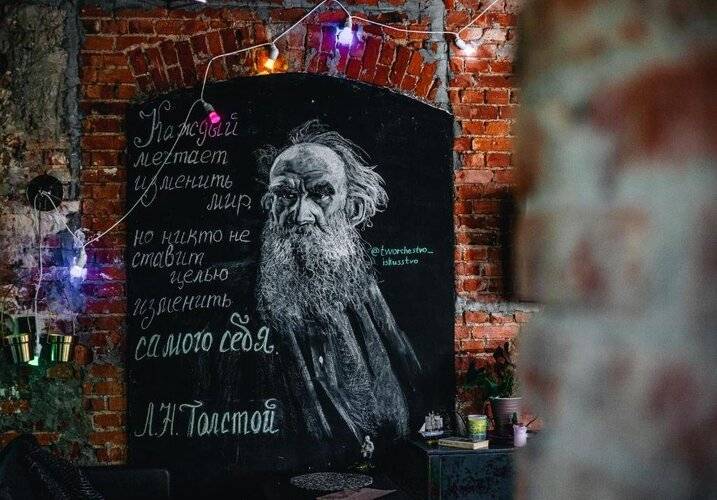 Каждый
мечтает
изменить
мир,
но никто не
ставит
целью
изменить
самого себя.
Л.Н. Толстой
@tworchestvo_
iskusstvo